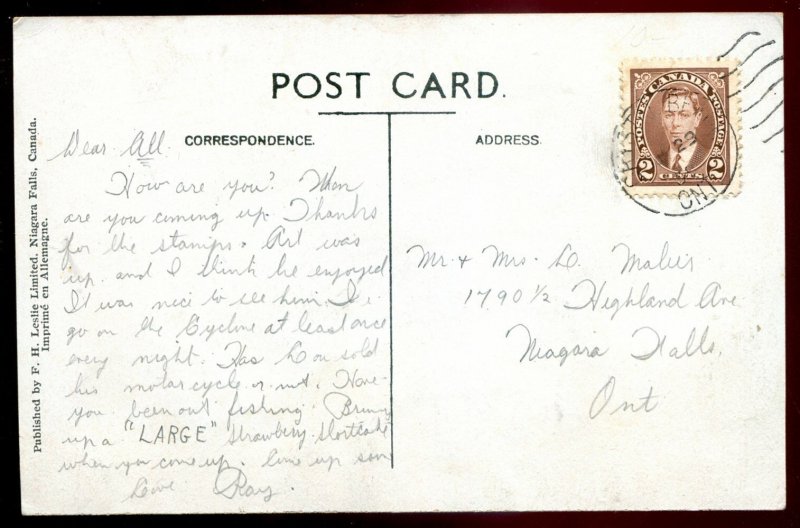 POST CARD.
CORRESPONDENCE.
ADDRESS.
Dear All
How are you? When
are you coming up. Thanks
for the stamps. Art was
up and I think he enjoyed
It was nice to see him. I
go on the Cyclone at least once
every night. Has Lou sold
his motorcycle or not. Have
you been out fishing. Bring
up a "LARGE" strawberry shortcake
when you come up. Come up soon
Love Ray.
Mr. & Mrs. L.
1790 1/2 Highland Ave
Niagara Falls,
Ont
POSTES CANADA POSTAGE
2 CENTS 2
29
ONT
Published by F. H. Leslie Limited, Niagara Falls, Canada.
Imprimé en Allemagne.